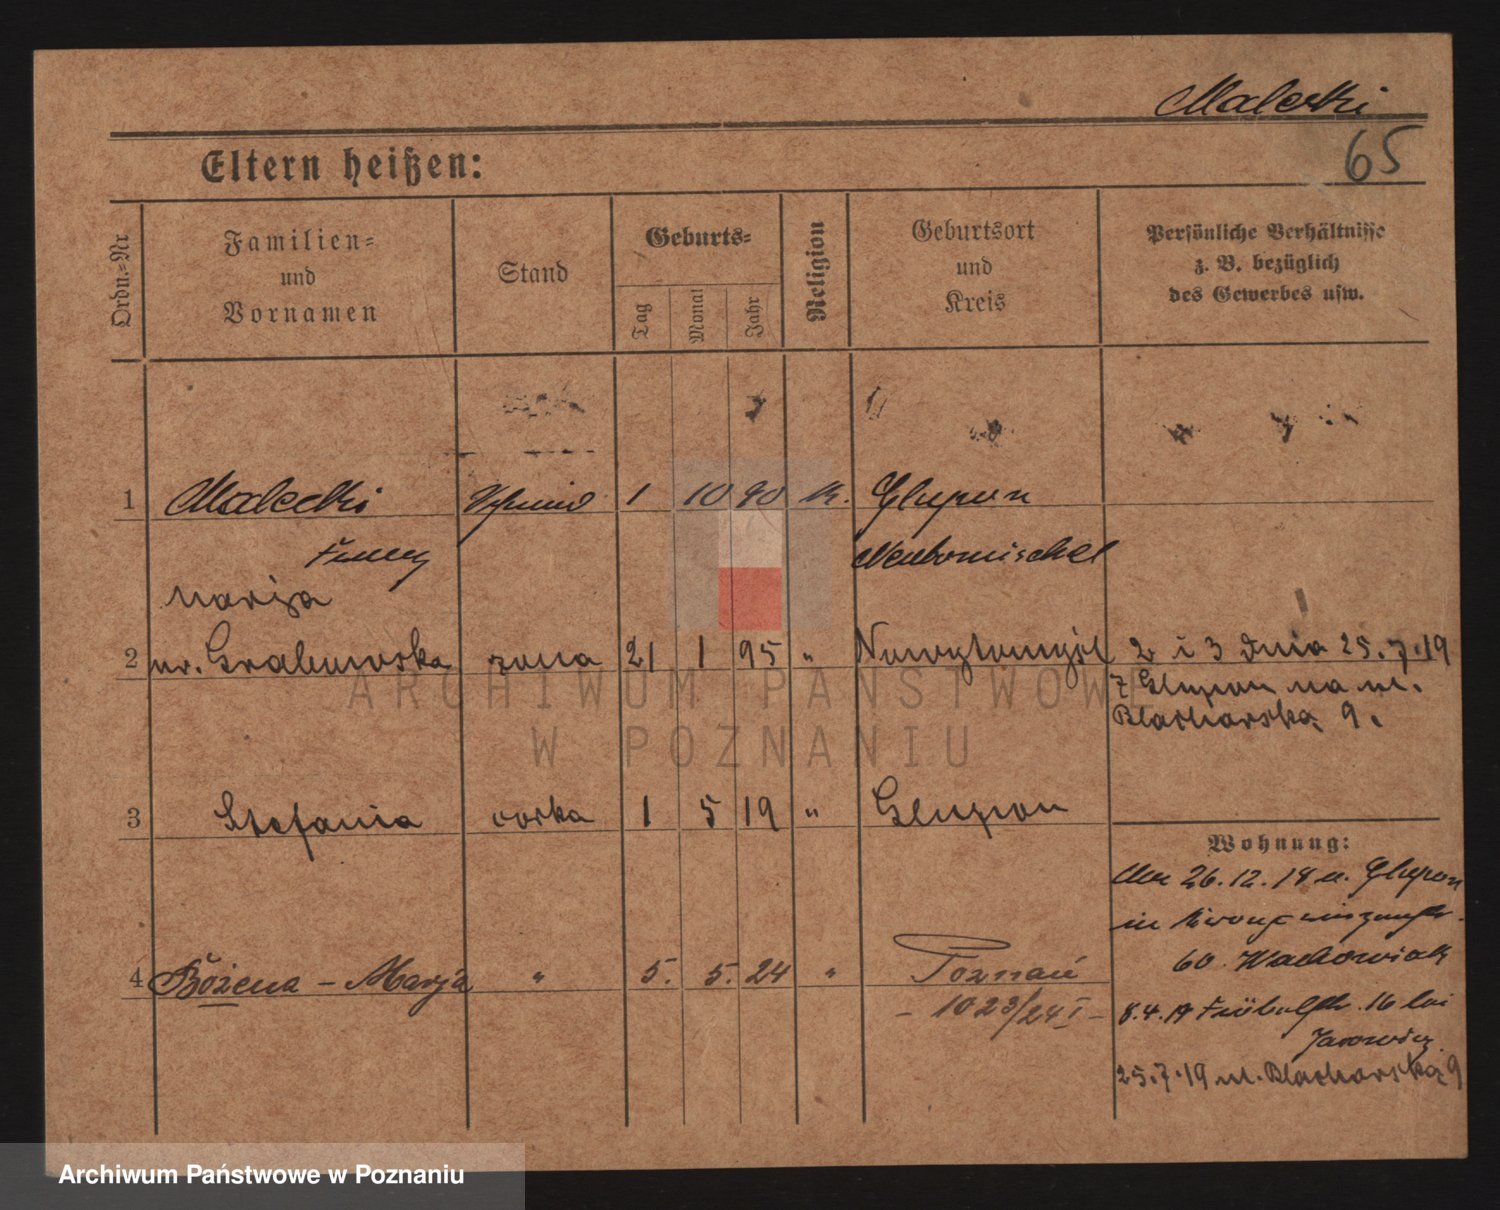 Malecki
65
Eltern heißen:
Ordn.-Nr.
Familien-
und
Vornamen
Stand
Geburts-
Tag
Monat
Jahr
Religion
Geburtsort
und
Kreis
Persönliche Verhältnisse
z. B. bezüglich
des Gewerbes usw.
1 Malecki Schmied 1 10 90 K. Glupon
Neutomischel
Marija
2 ur. Grabowska żona 21 1 95 " Nowytomyśl 2 i 3 dnia 25.7.19
z Glupon na ul.
Blacharską 9.
3 Stefania córka 1 5 19 " Glupon
Wohnung:
26.12.18 Glupon
in
60 Wachowiak
4 Bożena - Marja " 5. 5. 24 " Poznań
- 1023/24 I -
8.4.19 Fröbelstr. 16 bei
25.7.19 ul. Blacharska 9
ARCHIWUM PAŃSTWOWE
W POZNANIU
Archiwum Państwowe w Poznaniu